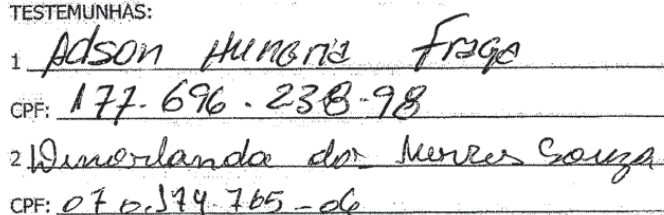 TESTEMUNHAS:
1 Adson Hungria Fraga
CPF: 177.696.238-98
2 Dinorlanda dos Souza
CPF: 070.174.765-06